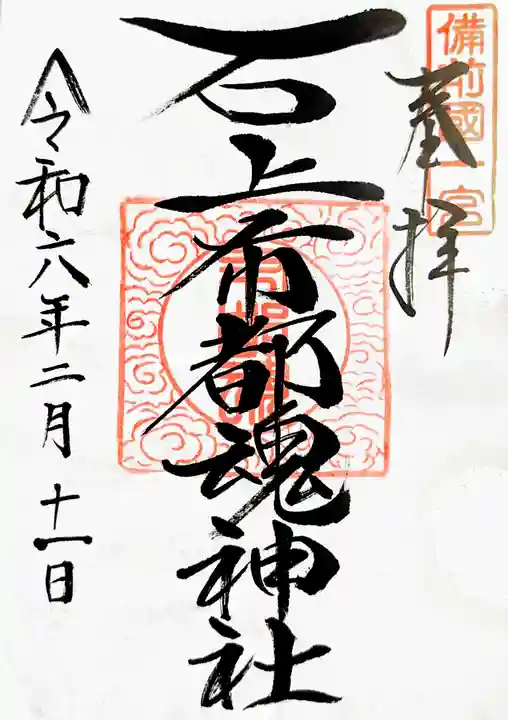 備前國一宮
奉拝
石上布都魂神社
令和六年二月十一日